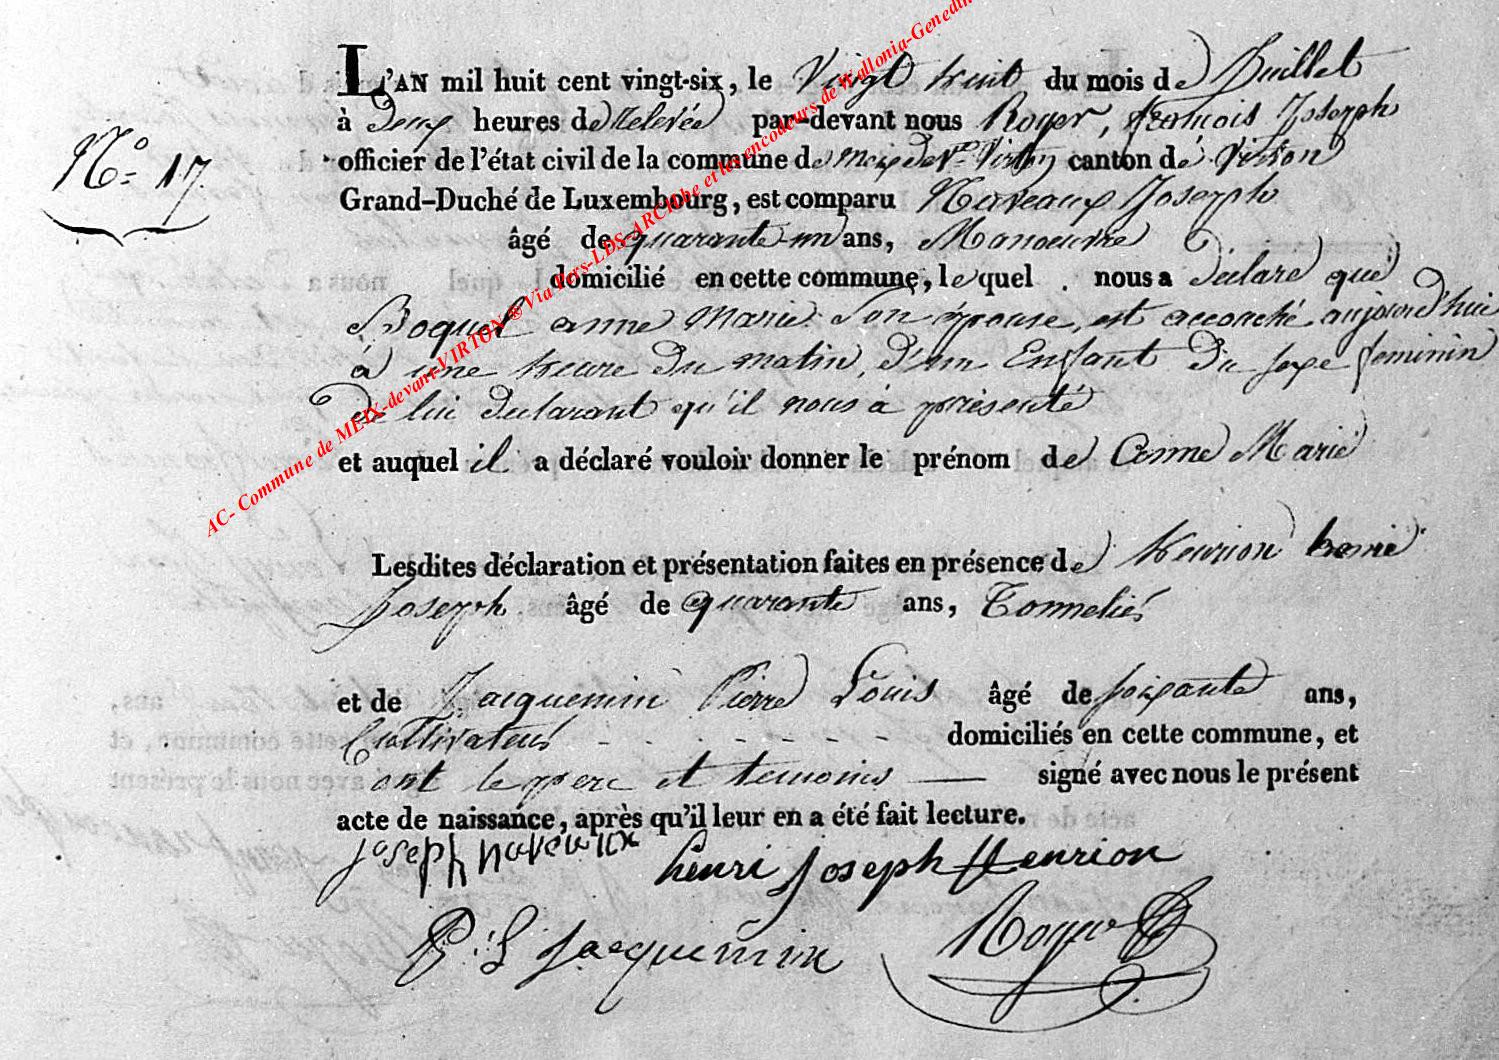 N° 17.
L'AN mil huit cent vingt-six, le Vingt huit du mois de Juillet
à deux heures de Relevée par-devant nous Royer, françois Joseph
officier de l'état civil de la commune de Meix dev.t Virton canton de Virton
Grand-Duché de Luxembourg, est comparu Naveaux Joseph
âgé de quarante-un ans, Manoeuvre
domicilié en cette commune, lequel nous a déclaré que
Boquel anne Marie Son épouse, est accouché aujourd'hui
à une heure du matin d'un Enfant du sexe feminin
de lui declarant qu'il nous à présenté
et auquel il a déclaré vouloir donner le prénom de Anne Marie
Lesdites déclaration et présentation faites en présence de henrion henri
Joseph âgé de quarante ans, Tonnelié
et de Jacquemin Pierre Louis âgé de soixante ans,
Cultivateur - - - - - - - domiciliés en cette commune, et
ont le pere et temoins — signé avec nous le présent
acte de naissance, après qu'il leur en a été fait lecture.
joseph naveaux henri joseph Henrion
P. L Jacquemin Royer
AC- Commune de MEIX-devant-VIRTON ® Via Pers-LDS-ARCHbe et les encodeurs de Wallonia-Genedin